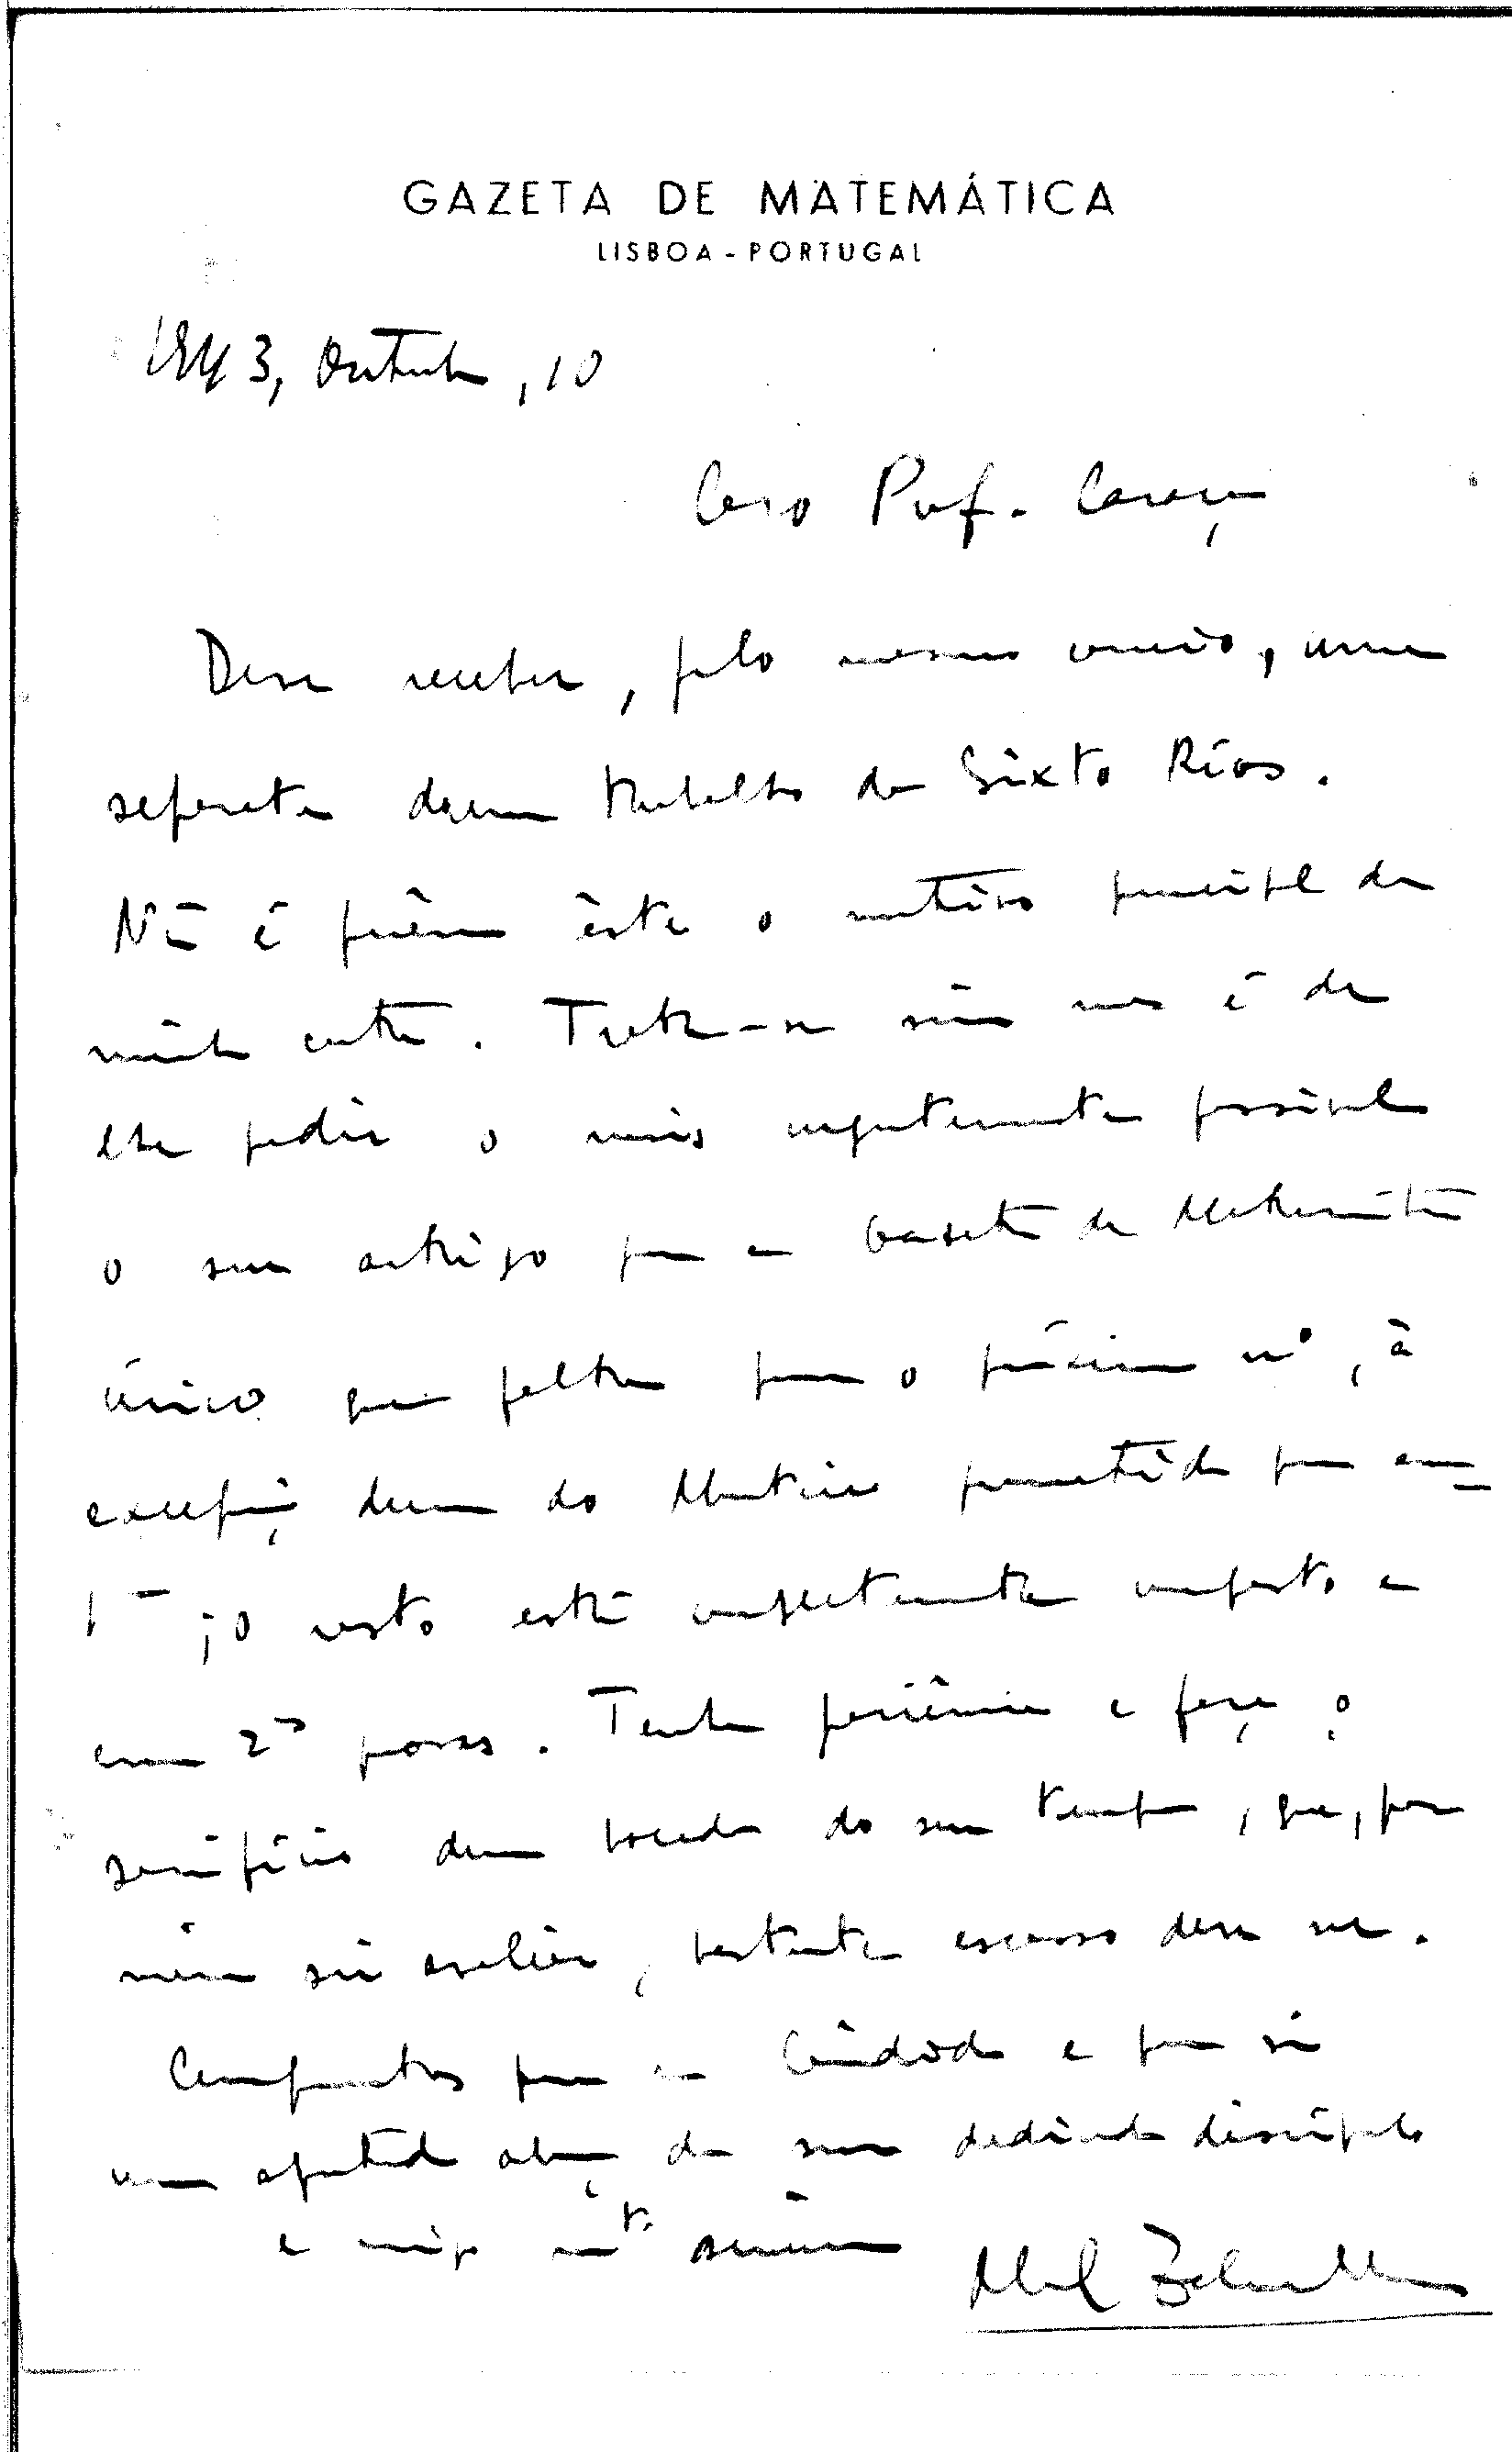 GAZETA DE MATEMÁTICA
LISBOA - PORTUGAL
1943, Outubro, 10
Caro Prof. Caraça
Deve receber, pelo mesmo correio, uma
separata dum trabalho de Sixto Ríos.
Não é porém êste o motivo principal da
minha carta. Trata-se sim mas é de
lhe pedir o mais urgentemente possível
o seu artigo para a Gazeta de Matemática
único que falta para o próximo nº, à
excepção dum do Monteiro prometido para
; o resto está completamente composto e
em 2as provas. Tenha paciência e faça o
sacrifício dum bocado do seu tempo, que, por
mim sei avaliar, bastante escasso deve ser.
Cumprimentos para a Cândida e para si
um apertado abraço do seu dedicado discípulo
e amigo mto